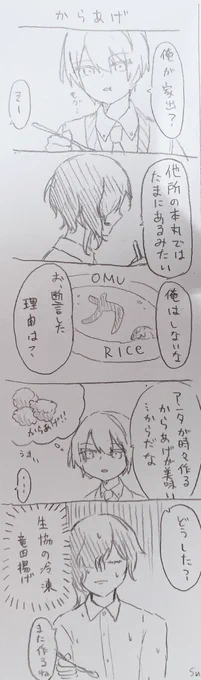 からあげ
俺が家出？
もぐ…
そー
他所の本丸では
たまにあるみたい
俺はしないな
OMU
RICE
お、断言した
理由は？
アンタが時々作る
からあげが美味い
からだな
からあげ!!
うまい
…
どうした？
生協の冷凍
竜田揚げ
また作るね